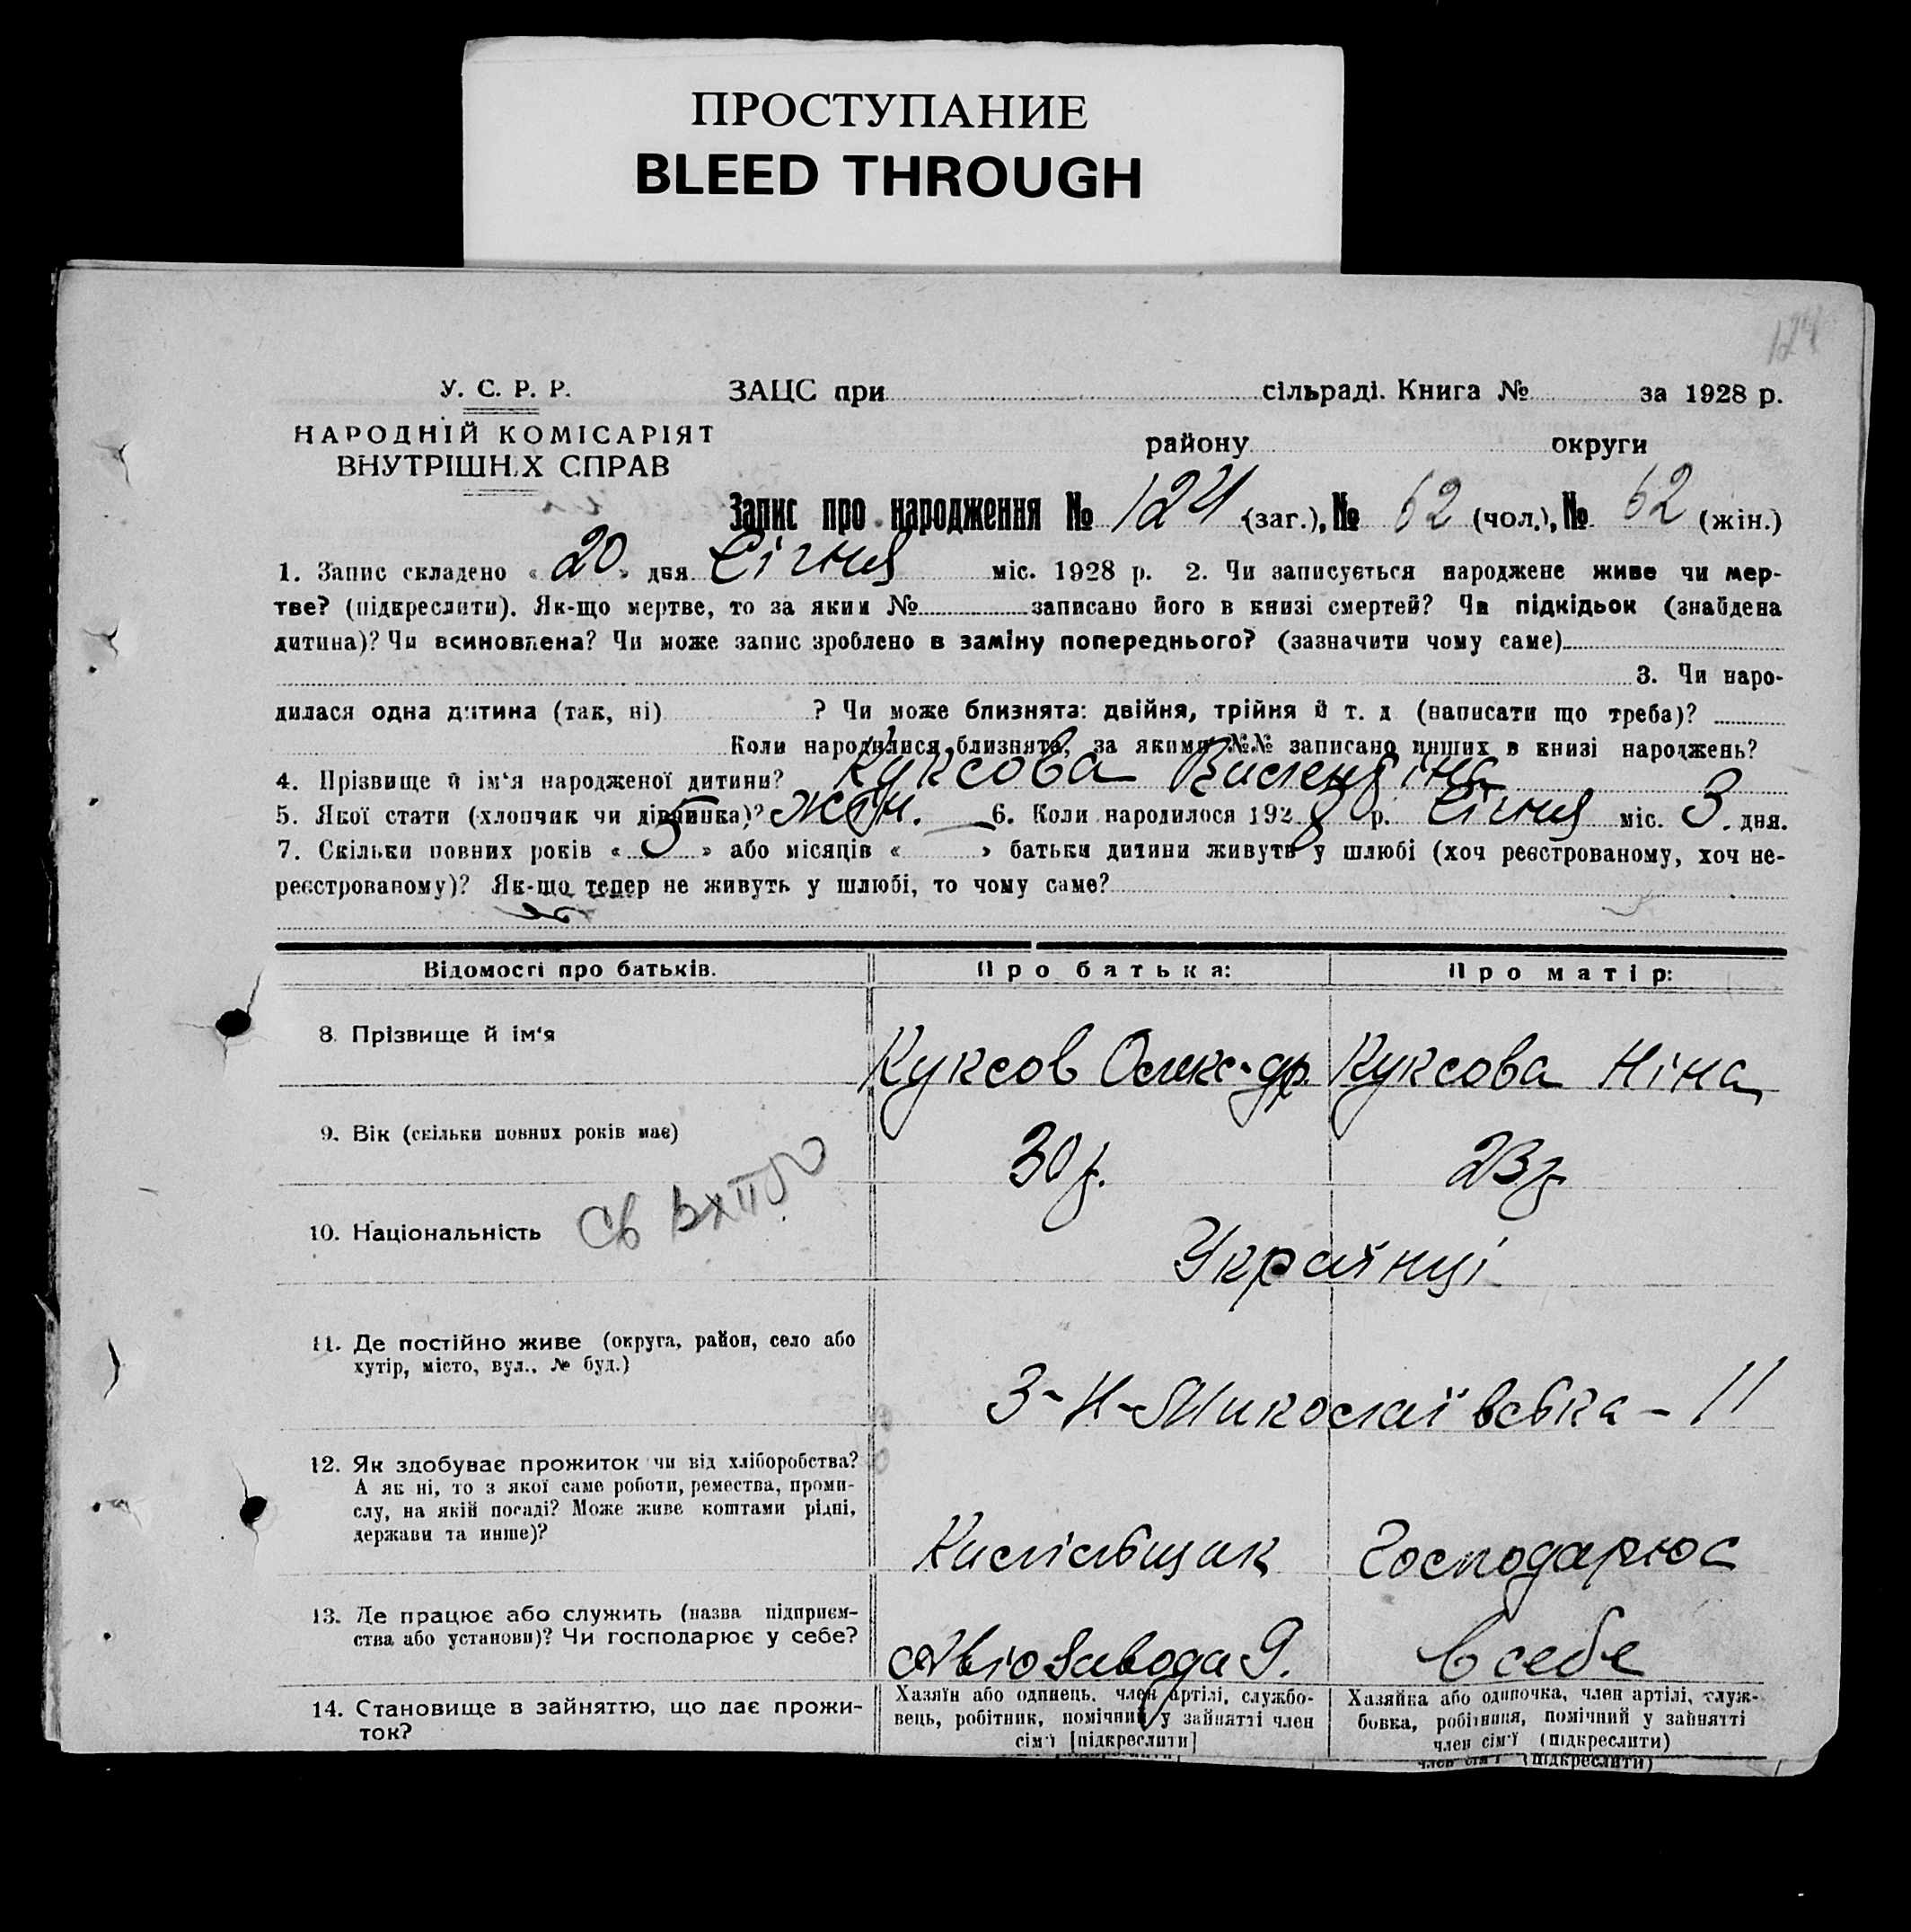 ПРОСТУПАНИЕ
BLEED THROUGH
124
У. С. Р. Р.
НАРОДНІЙ КОМІСАРІЯТ
ВНУТРІШНІХ СПРАВ
ЗАЦС при сільраді. Книга № за 1928 р.
району округи
Запис про народження № 124 (заг.), № 62 (чол.), № 62 (жін.)
1. Запис складено « 20 » дня Січня міс. 1928 р. 2. Чи записується народжене живе чи мер-
тве? (підкреслити). Як-що мертве, то за яким № записано його в книзі смертей? Чи підкідьок (знайдена
дитина)? Чи всиновлена? Чи може запис зроблено в заміну попереднього? (зазначити чому саме)
3. Чи наро-
дилася одна дитина (так, ні) ? Чи може близнята: двійня, трійня й т. д (написати що треба)?
Коли народилися близнята, за якими №№ записано инших в книзі народжень?
4. Прізвище й ім'я народженої дитини? Куксова
5. Якої стати (хлопчик чи дівчинка)? жін. 6. Коли народилося 1928 р. Січня міс. 3. дня.
7. Скільки повних років « 5 » або місяців « » батьки дитини живуть у шлюбі (хоч реєстрованому, хоч не-
реєстрованому)? Як-що тепер не живуть у шлюбі, то чому саме?
Відомості про батьків. Про батька: Про матір:
8. Прізвище й ім'я Куксов Олекс-др. Куксова Ніна
9. Вік (скільки повних років має) 30 р. 23 р.
10. Національність Українці
11. Де постійно живе (округа, район, село або
хутір, місто, вул., № буд.)
3-Н-Миколаївська - 11
12. Як здобуває прожиток чи від хліборобства?
А як ні, то з якої саме роботи, ремества, проми-
слу, на якій посаді? Може живе коштами рідні,
держави та инше)?
Господарює
13. Де працює або служить (назва підприєм-
ства або установи)? Чи господарює у себе?
Авіозавода 9. В себе
14. Становище в зайняттю, що дає прожи-
ток?
Хазяїн або одинець, член артілі, службо-
вець, робітник, помічний у зайнятті член
сім'ї [підкреслити]
Хазяйка або одиночка, член артілі, служ-
бовка, робітниця, помічний у зайнятті
член сім'ї (підкреслити)
член сім'ї (підкреслити)